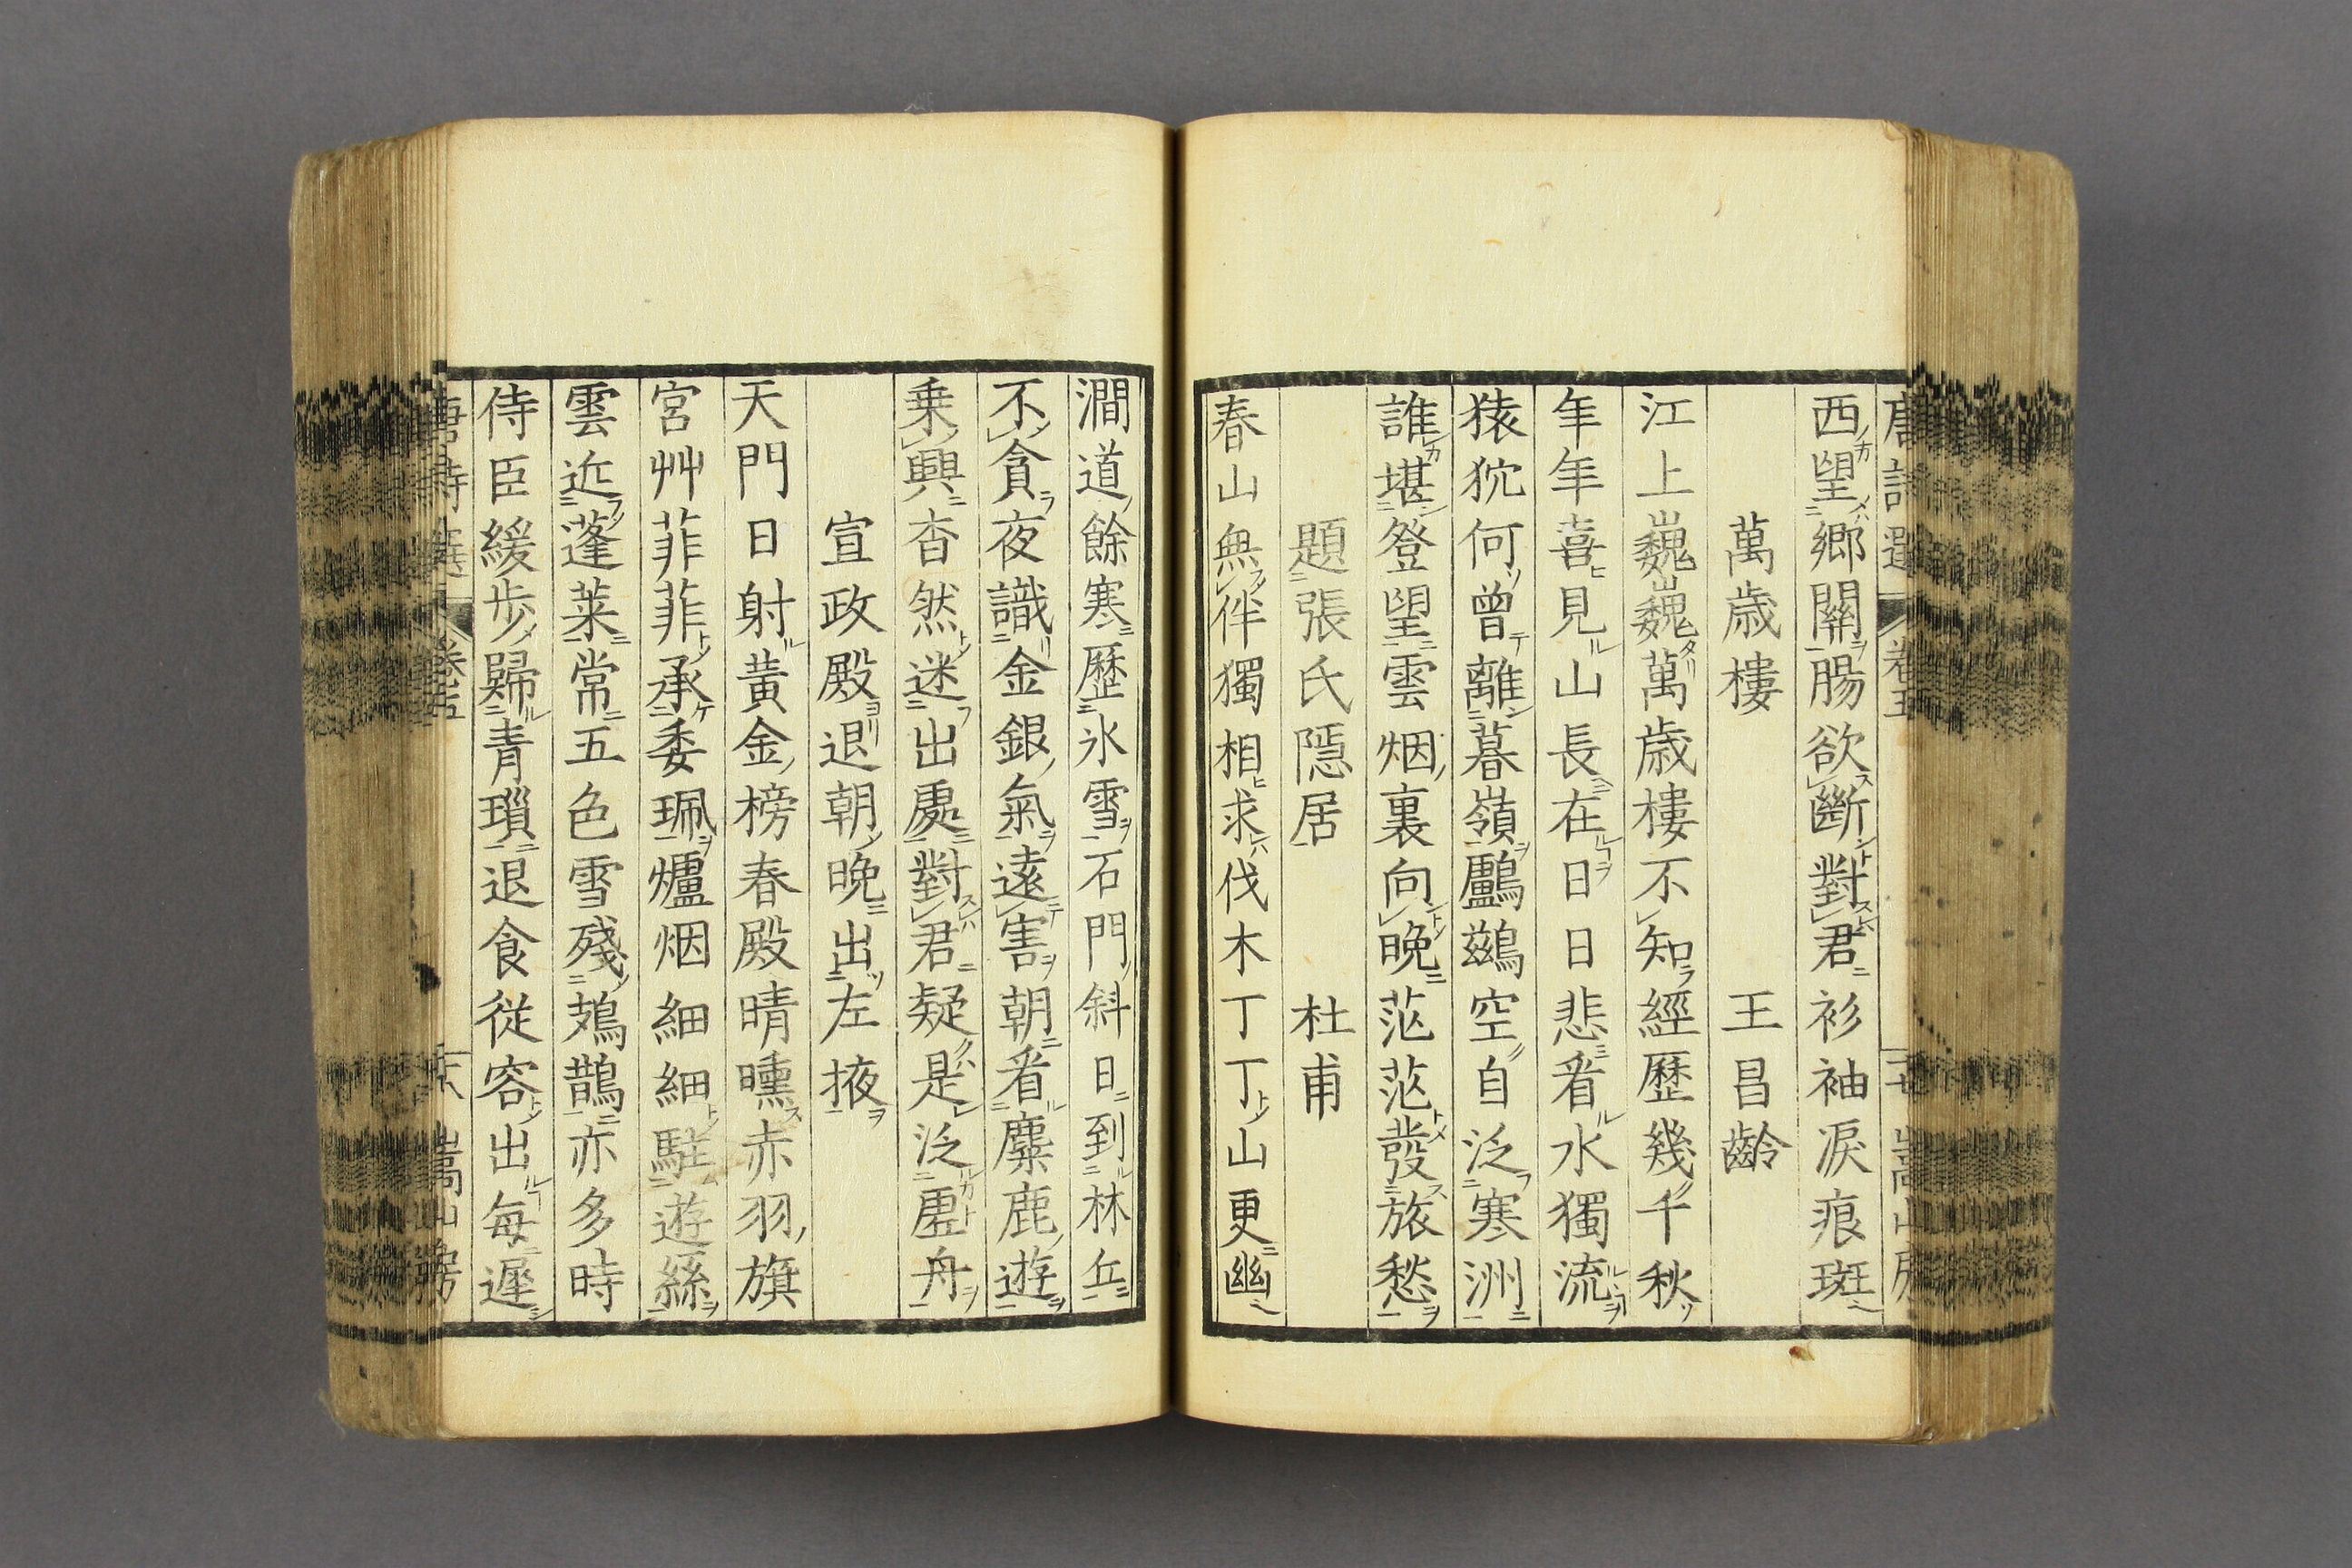 唐詩選 卷五 嵩山房
西望鄉關腸欲斷對君衫袖淚痕斑
萬歲樓 王昌齡
江上巍巍萬歲樓不知經歷幾千秋
年年喜見山長在日日悲看水獨流
猿狖何曾離暮嶺鸕鷀空自泛寒洲
誰堪登望雲烟裏向晚茫茫發旅愁
題張氏隱居 杜甫
春山無伴獨相求伐木丁丁山更幽
澗道餘寒歷氷雪石門斜日到林丘
不貪夜識金銀氣遠害朝看麋鹿遊
乗興杳然迷出處對君疑是泛虛舟
宣政殿退朝晚出左掖
天門日射黃金榜春殿晴曛赤羽旗
宮艸菲菲承委珮爐烟細細駐遊絲
雲近蓬莱常五色雪殘鳷鵲亦多時
侍臣緩步歸青瑣退食從容出每遲
唐詩選 卷五 嵩山房